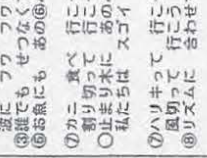 波に フワ フワ
③誰でも せつなく
⑥お魚にも あの⑥
⑦カニ 食べ 行こ
割り切って 行こ
〇止まり木に あの
私たちは スゴイ
⑦ハリキって 行こ
風切って 行こう
⑧リズムに 合わせ